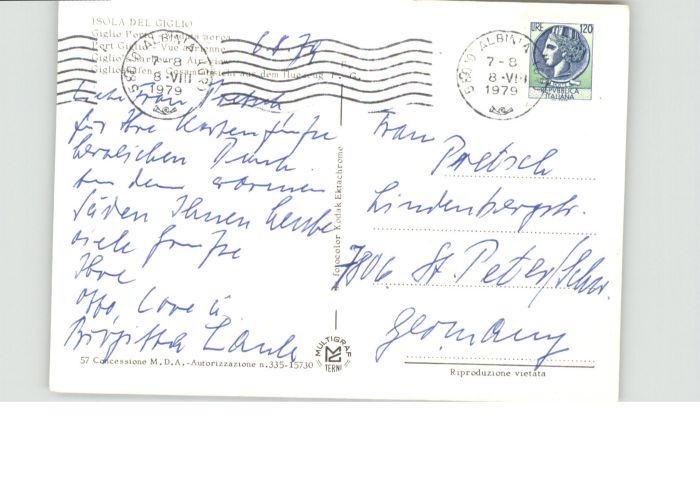 ISOLA DEL GIGLIO
Giglio Porto - Veduta aerea
Port Giglio - Vue aérienne
Giglio Harbour - Air view
Giglio Hafen - Gesamtansicht aus dem Flugzeug
6.8.79
58010 ALBINIA (GR)
7-8
8-VIII
1979
58010 ALBINIA
7-8
8-VIII
1979
LIRE 120
REPVBBLICA
ITALIANA
Liebe Frau Pretsch
für Ihre Kartengrüße
herzlichen Dank.
Aus dem warmen
Süden Ihnen
viele Grüße
Ihre
Otto, Lore u.
Birgitta
Frau
Pretsch
Lindenbergstr.
7806 St. Peter/Schw.
Germany
fotocolor Kodak Ektachrome
MULTIGRAF
TERNI
57 Concessione M.D.A.-Autorizzazione n.335-15730
Riproduzione vietata